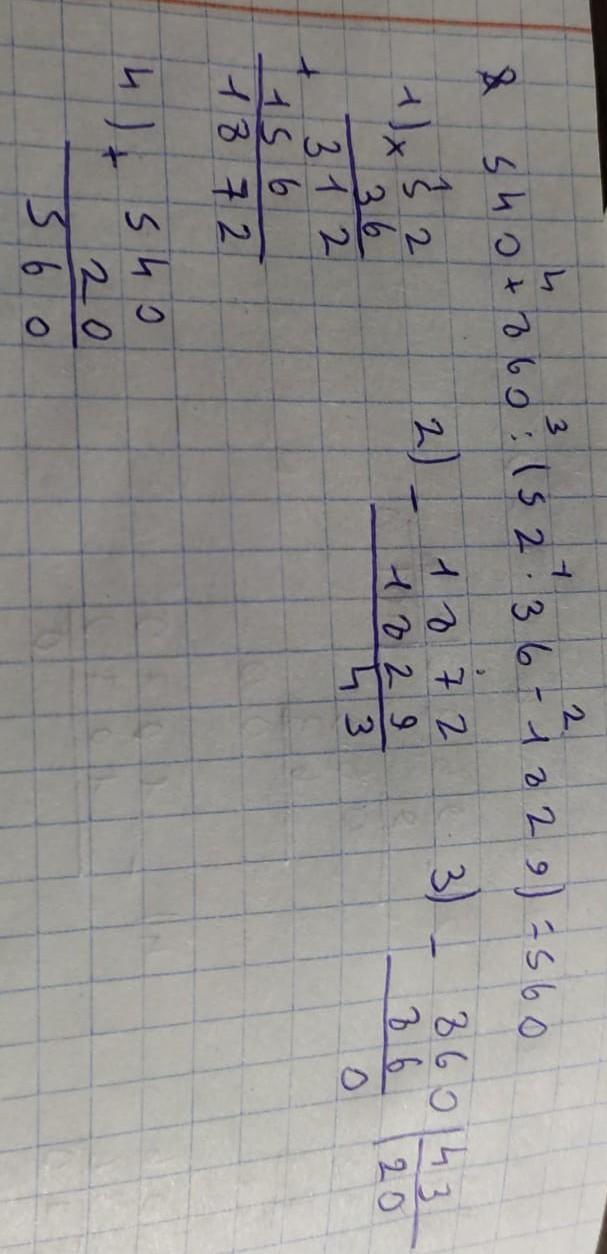 540 + 860 : (52 · 36 - 1829) = 560
4 3 1 2
1) × 52
36
+ 312
156
1872
2) - 1872
1829
43
3) - 860 | 43
86 | 20
0
4) + 540
20
560